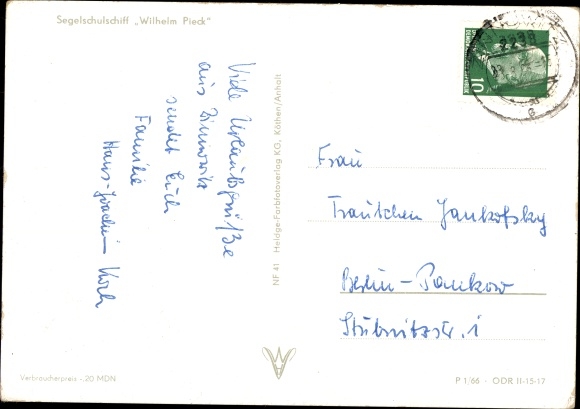 Segelschulschiff „Wilhelm Pieck"
Viele Urlaubsgrüße
aus Zinnowitz
sendet Euch
Familie
Hans-Joachim Koch
NF 41 Heldge-Farbfotoverlag KG, Köthen/Anhalt
10
2238
Frau
Trautchen Jankofsky
Berlin-Pankow
Stubnitzstr. 1
Verbraucherpreis -20 MDN
P 1/66 · ODR II-15-17